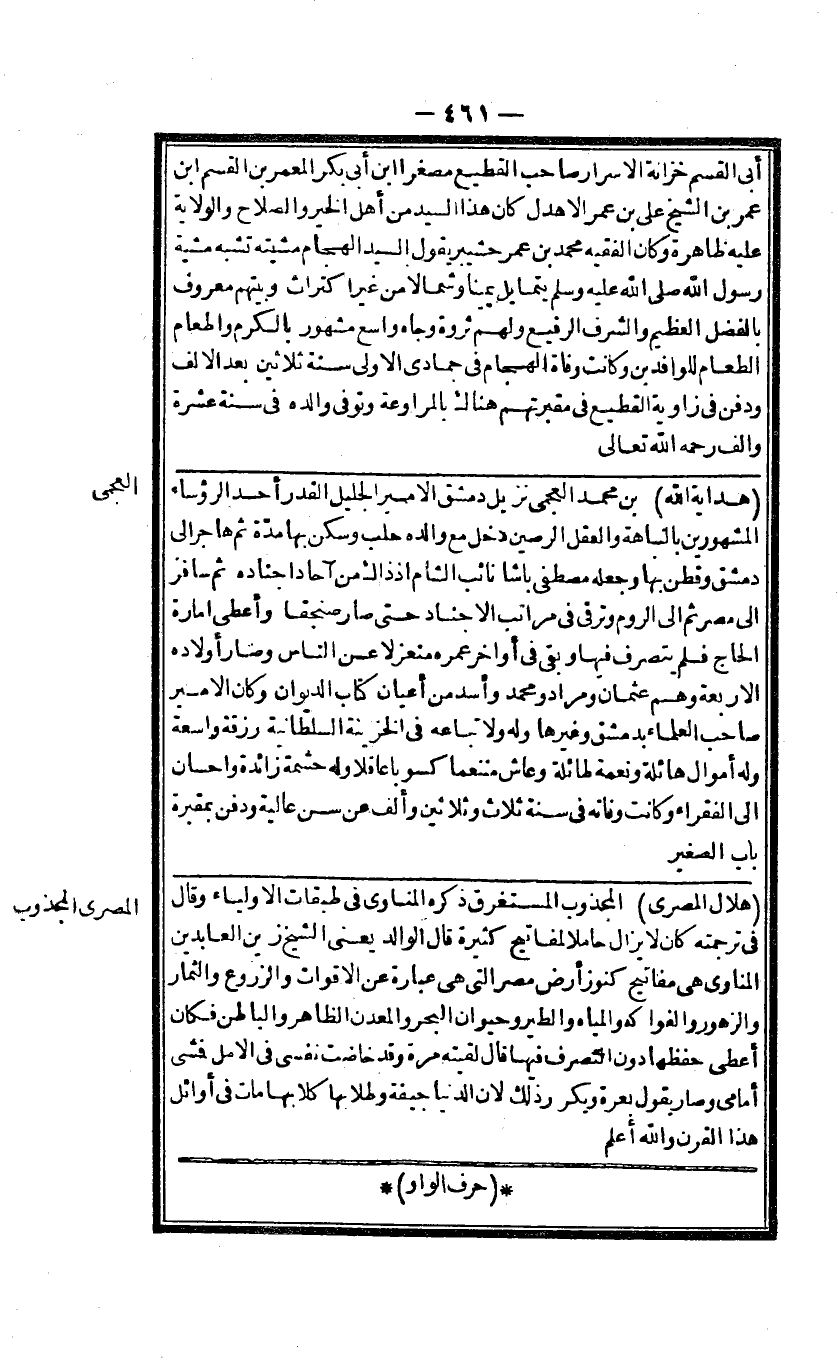 — ٤٦١ —
أبى القسم خزانة الاسرار صاحب القطيع مصغرا ابن أبى بكر المعمر بن القسم ابن
عمر بن الشيخ على بن عمر الاهدل كان هذا السيد من أهل الخير والصلاح والولاية
عليه ظاهرة وكان الفقيه محمد بن عمر حشيبر يقول السيد الهجام مشيته تشبه مشية
رسول الله صلى الله عليه وسلم يتمايل يمينا وشمالا من غير اكتراث وبيتهم معروف
بالفضل العظيم والشرف الرفيع ولهم ثروة وجاه واسع مشهور بالكرم واطعام
الطعام للوافدين وكانت وفاة الهجام فى جمادى الاولى سنة ثلاثين بعد الالف
ودفن فى زاوية القطيع فى مقبرتهم هنالك بالمراوعة وتوفى والده فى سنة عشرة
والف رحمه الله تعالى
العجمى
(هداية الله) بن محمد العجمى نزيل دمشق الامير الجليل القدر أحد الرؤساء
المشهورين بالنباهة والعقل الرصين دخل مع والده حلب وسكن بها مدّة ثم هاجر الى
دمشق وقطن بها وجعله مصطفى باشا نائب الشام اذذاك من آحاد اجناده ثم سافر
الى مصر ثم الى الروم وترقى فى مراتب الاجناد حتى صار صنجقا وأعطى امارة
الحاج فلم يتصرف فيها وبقى فى أواخر عمره منعزلا عن الناس وصار أولاده
الاربعة وهم عثمان ومراد ومحمد وأسد من أعيان كتاب الديوان وكان الامير
صاحب العلماء بدمشق وغيرها وله ولاتباعه فى الخزينة السلطانية رزقة واسعة
وله أموال هائلة ونعمة طائلة وعاش متنعما كسوبا عاقلا وله حشمة زائدة واحسان
الى الفقراء وكانت وفاته فى سنة ثلاث وثلاثين وألف عن سن عالية ودفن بمقبرة
باب الصغير
المصرى المجذوب
(هلال المصرى) المجذوب المستغرق ذكره المناوى فى طبقات الاولياء وقال
فى ترجمته كان لا يزال حاملا لمفاتيح كثيرة قال الوالد يعنى الشيخ زين العابدين
المناوى هى مفاتيح كنوز أرض مصر التى هى عبارة عن الاقوات والزروع والثمار
والزهور والفواكه والمياه والطير وحيوان البحر والمعدن الظاهر والباطن فكان
أعطى حفظها دون التصرف فيها قال لقيته مرة وقد خاضت نفسى فى الامل فمشى
أمامى وصار يقول بعرة ويكرر ذلك لان الدنيا جيفة وطلابها كلابها مات فى أوائل
هذا القرن والله أعلم
*(حرف الواو)*